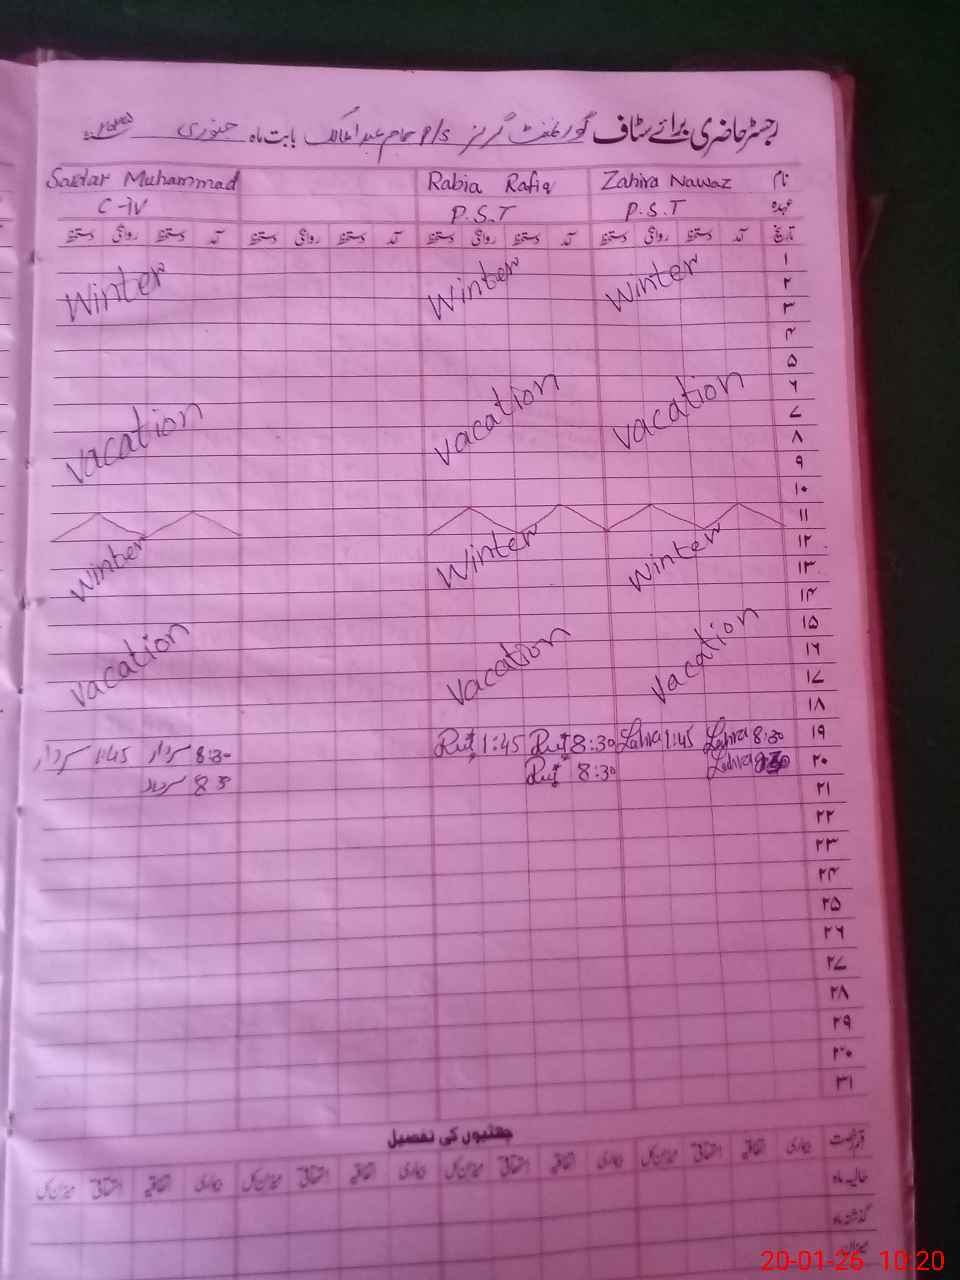 رجسٹر حاضری برائے سٹاف گورنمنٹ گرلز P/S بابت ماہ جنوری
نام Zahira Nawaz Rabia Rafiq Sardar Muhammad
عہدہ P.S.T P.S.T C-IV
تاریخ آمد دستخط روانگی دستخط آمد دستخط روانگی دستخط آمد دستخط روانگی دستخط آمد دستخط روانگی دستخط
۱
۲ Winter Winter Winter
۳
۴
۵
۶
۷ vacation vacation vacation
۸
۹
۱۰
۱۱
۱۲
۱۳ Winter Winter Winter
۱۴
۱۵
۱۶ vacation vacation vacation
۱۷
۱۸
۱۹ 8:30 1:45 8:30 1:45 8:30 سردار 1:45 سردار
۲۰ 8:30 8:30 8 30 سردار
۲۱
۲۲
۲۳
۲۴
۲۵
۲۶
۲۷
۲۸
۲۹
۳۰
۳۱
چھٹیوں کی تفصیل
قسم رخصت بیماری اتفاقیہ استحقاقی میزان کل بیماری اتفاقیہ استحقاقی میزان کل بیماری اتفاقیہ استحقاقی میزان کل
حالیہ ماہ
گذشتہ ماہ
میزان
20-01-26 10:20